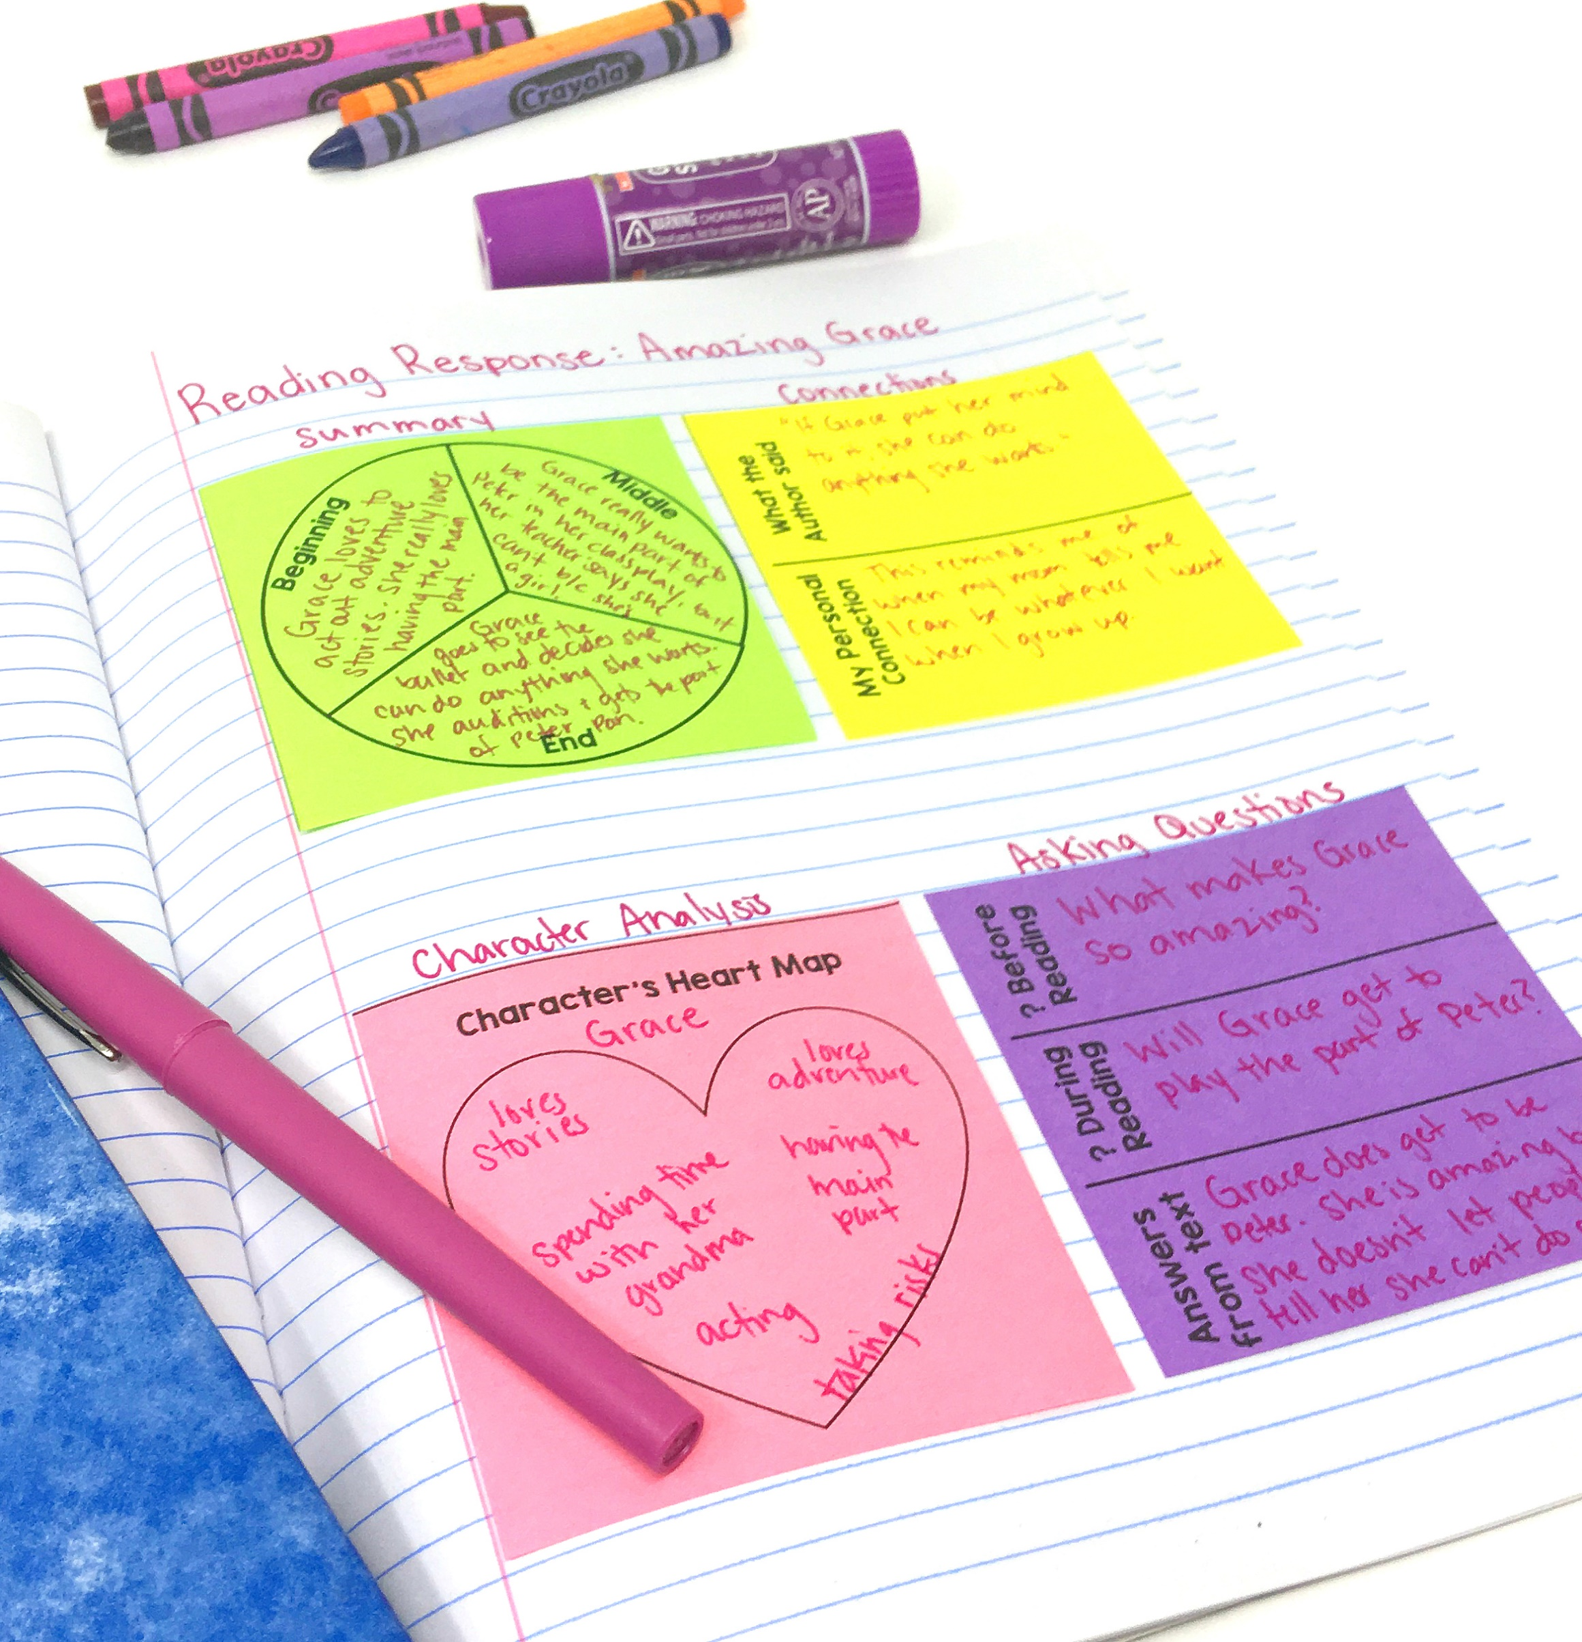 Crayola
Crayola
WARNING: CHOKING HAZARD
Small parts. Not for children under 3 yrs.
AP
Reading Response: Amazing Grace
Summary
Beginning
Grace loves to
act out adventure
stories. She really loves
having the main
part.
Middle
Grace really wants to
be the main part of
Peter in her class play, but
her teacher says she
can't b/c she's
a girl.
Grace
goes to see the
ballet and decides she
can do anything she wants.
She auditions & gets the part
of Peter Pan.
End
Connections
What the
Author said
"If Grace put her mind
to it, she can do
anything she wants."
My Personal
Connection
This reminds me of
when my mom tells me
I can be whatever I want
when I grow up.
Character Analysis
Character's Heart Map
Grace
loves
stories
loves
adventure
spending time
with her
grandma
having the
main
part
acting
taking risks
Asking Questions
? Before
Reading
What makes Grace
so amazing?
? During
Reading
Will Grace get to
play the part of Peter?
Answers
from text
Grace does get to be
Peter. She is amazing
She doesn't let
tell her she can't do